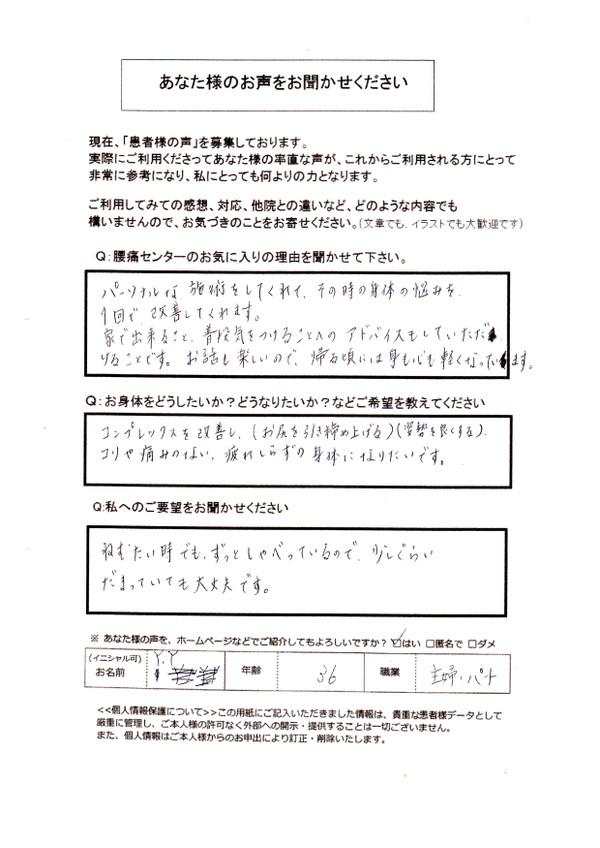 あなた様のお声をお聞かせください
現在、「患者様の声」を募集しております。
実際にご利用くださってあなた様の率直な声が、これからご利用される方にとって
非常に参考になり、私にとっても何よりの力となります。
ご利用してみての感想、対応、他院との違いなど、どのような内容でも
構いませんので、お気づきのことをお寄せください。(文章でも、イラストでも大歓迎です)
Q:腰痛センターのお気に入りの理由を聞かせて下さい。
パーソナルな 施術をしてくれて、その時の身体の悩みを
1回で、改善してくれます。
家で出来ること、普段気をつけることへの アドバイスもしていただ
けることです。お話も楽しいので、帰る頃には身も心も軽くなっています。
Q:お身体をどうしたいか?どうなりたいか?などご希望を教えてください
コンプレックスを改善し、(お尻を引き締め上げる)(姿勢を良くする)、
コリや痛みのない、疲れしらずの身体になりたいです。
Q:私へのご要望をお聞かせください
ねむたい時でも、ずっとしゃべっているので、少しぐらい
だまっていても大丈夫です。
※ あなた様の声を、ホームページなどでご紹介してもよろしいですか? ☑はい □匿名で □ダメ
(イニシャル可) お名前 Y.Y 年齢 36 職業 主婦・パート
<<個人情報保護について>>この用紙にご記入いただきました情報は、貴重な患者様データとして
厳重に管理し、ご本人様の許可なく外部への開示・提供することは一切ございません。
また、個人情報はご本人様からのお申出により訂正・削除いたします。